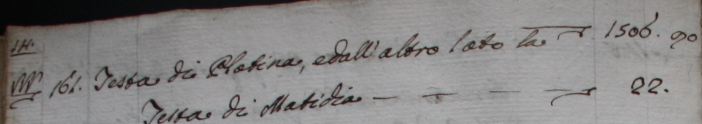 161. Testa di Plotina, e dall'altro lato la 1506. 90
Testa di Matidia — — — — 22.